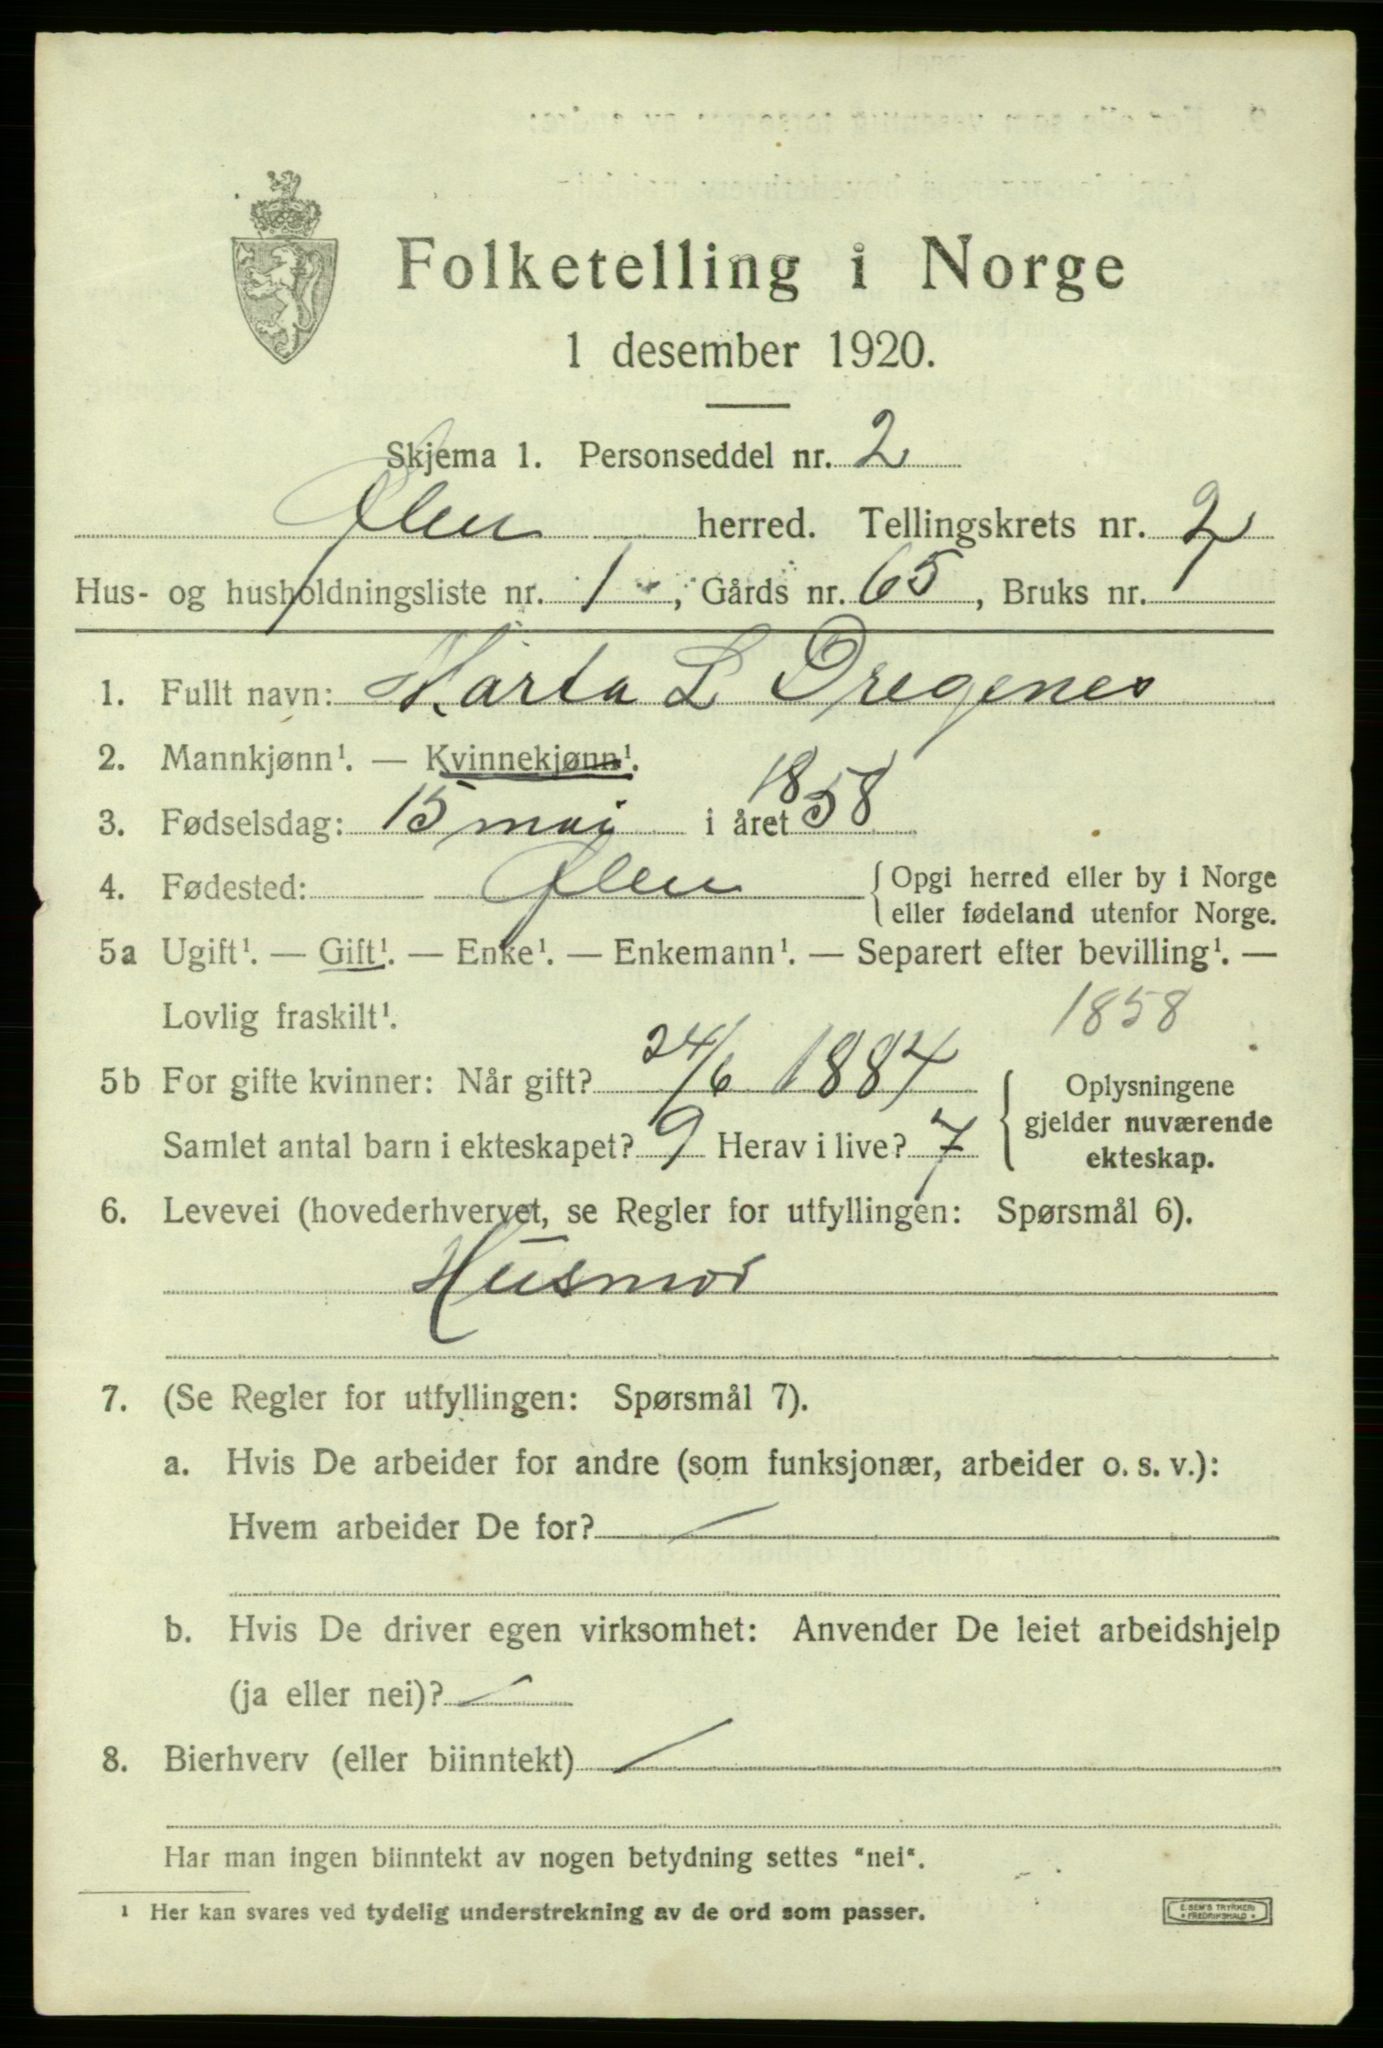 Folketelling i Norge
1 desember 1920.
Skjema 1. Personseddel nr. 2
Ølen herred. Tellingskrets nr. 2
Hus- og husholdningsliste nr. 1, Gårds nr. 65, Bruks nr. 1
1. Fullt navn: Marta L Dregenes
2. Mannkjønn¹. — Kvinnekjønn¹.
3. Fødselsdag: 15 mai i året 1858
4. Fødested: Ølen {Opgi herred eller by i Norge
eller fødeland utenfor Norge.
5a Ugift¹. — Gift¹. — Enke¹. — Enkemann¹. — Separert efter bevilling¹. —
Lovlig fraskilt¹. 1858
5b For gifte kvinner: Når gift? 24/6 1884 { Oplysningene
gjelder nuværende
Samlet antal barn i ekteskapet? 9 Herav i live? 7 ekteskap.
6. Levevei (hovederhvervet, se Regler for utfyllingen: Spørsmål 6).
Husmor
7. (Se Regler for utfyllingen: Spørsmål 7).
a. Hvis De arbeider for andre (som funksjonær, arbeider o. s. v.):
Hvem arbeider De for? —
b. Hvis De driver egen virksomhet: Anvender De leiet arbeidshjelp
(ja eller nei)? —
8. Bierhverv (eller biinntekt) —
Har man ingen biinntekt av nogen betydning settes "nei".
¹ Her kan svares ved tydelig understrekning av de ord som passer.
E. SEM'S TRYKKERI
FREDRIKSHALD